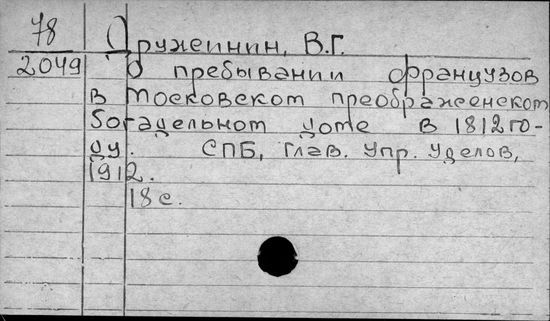 78
2049
Дружинин, В.Г.
О пребывании французов
в Московском преображенском
богадельном доме в 1812 го-
ду. СПБ, Глав. Упр. Уделов,
1912.
18 с.